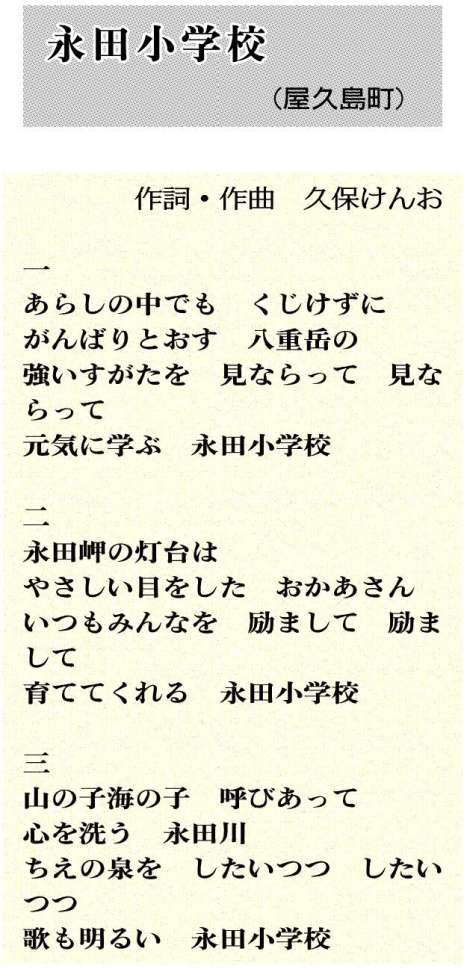 永田小学校
（屋久島町）
作詞・作曲　久保けんお
一
あらしの中でも　くじけずに
がんばりとおす　八重岳の
強いすがたを　見ならって　見な
らって
元気に学ぶ　永田小学校
二
永田岬の灯台は
やさしい目をした　おかあさん
いつもみんなを　励まして　励ま
して
育ててくれる　永田小学校
三
山の子海の子　呼びあって
心を洗う　永田川
ちえの泉を　したいつつ　したい
つつ
歌も明るい　永田小学校